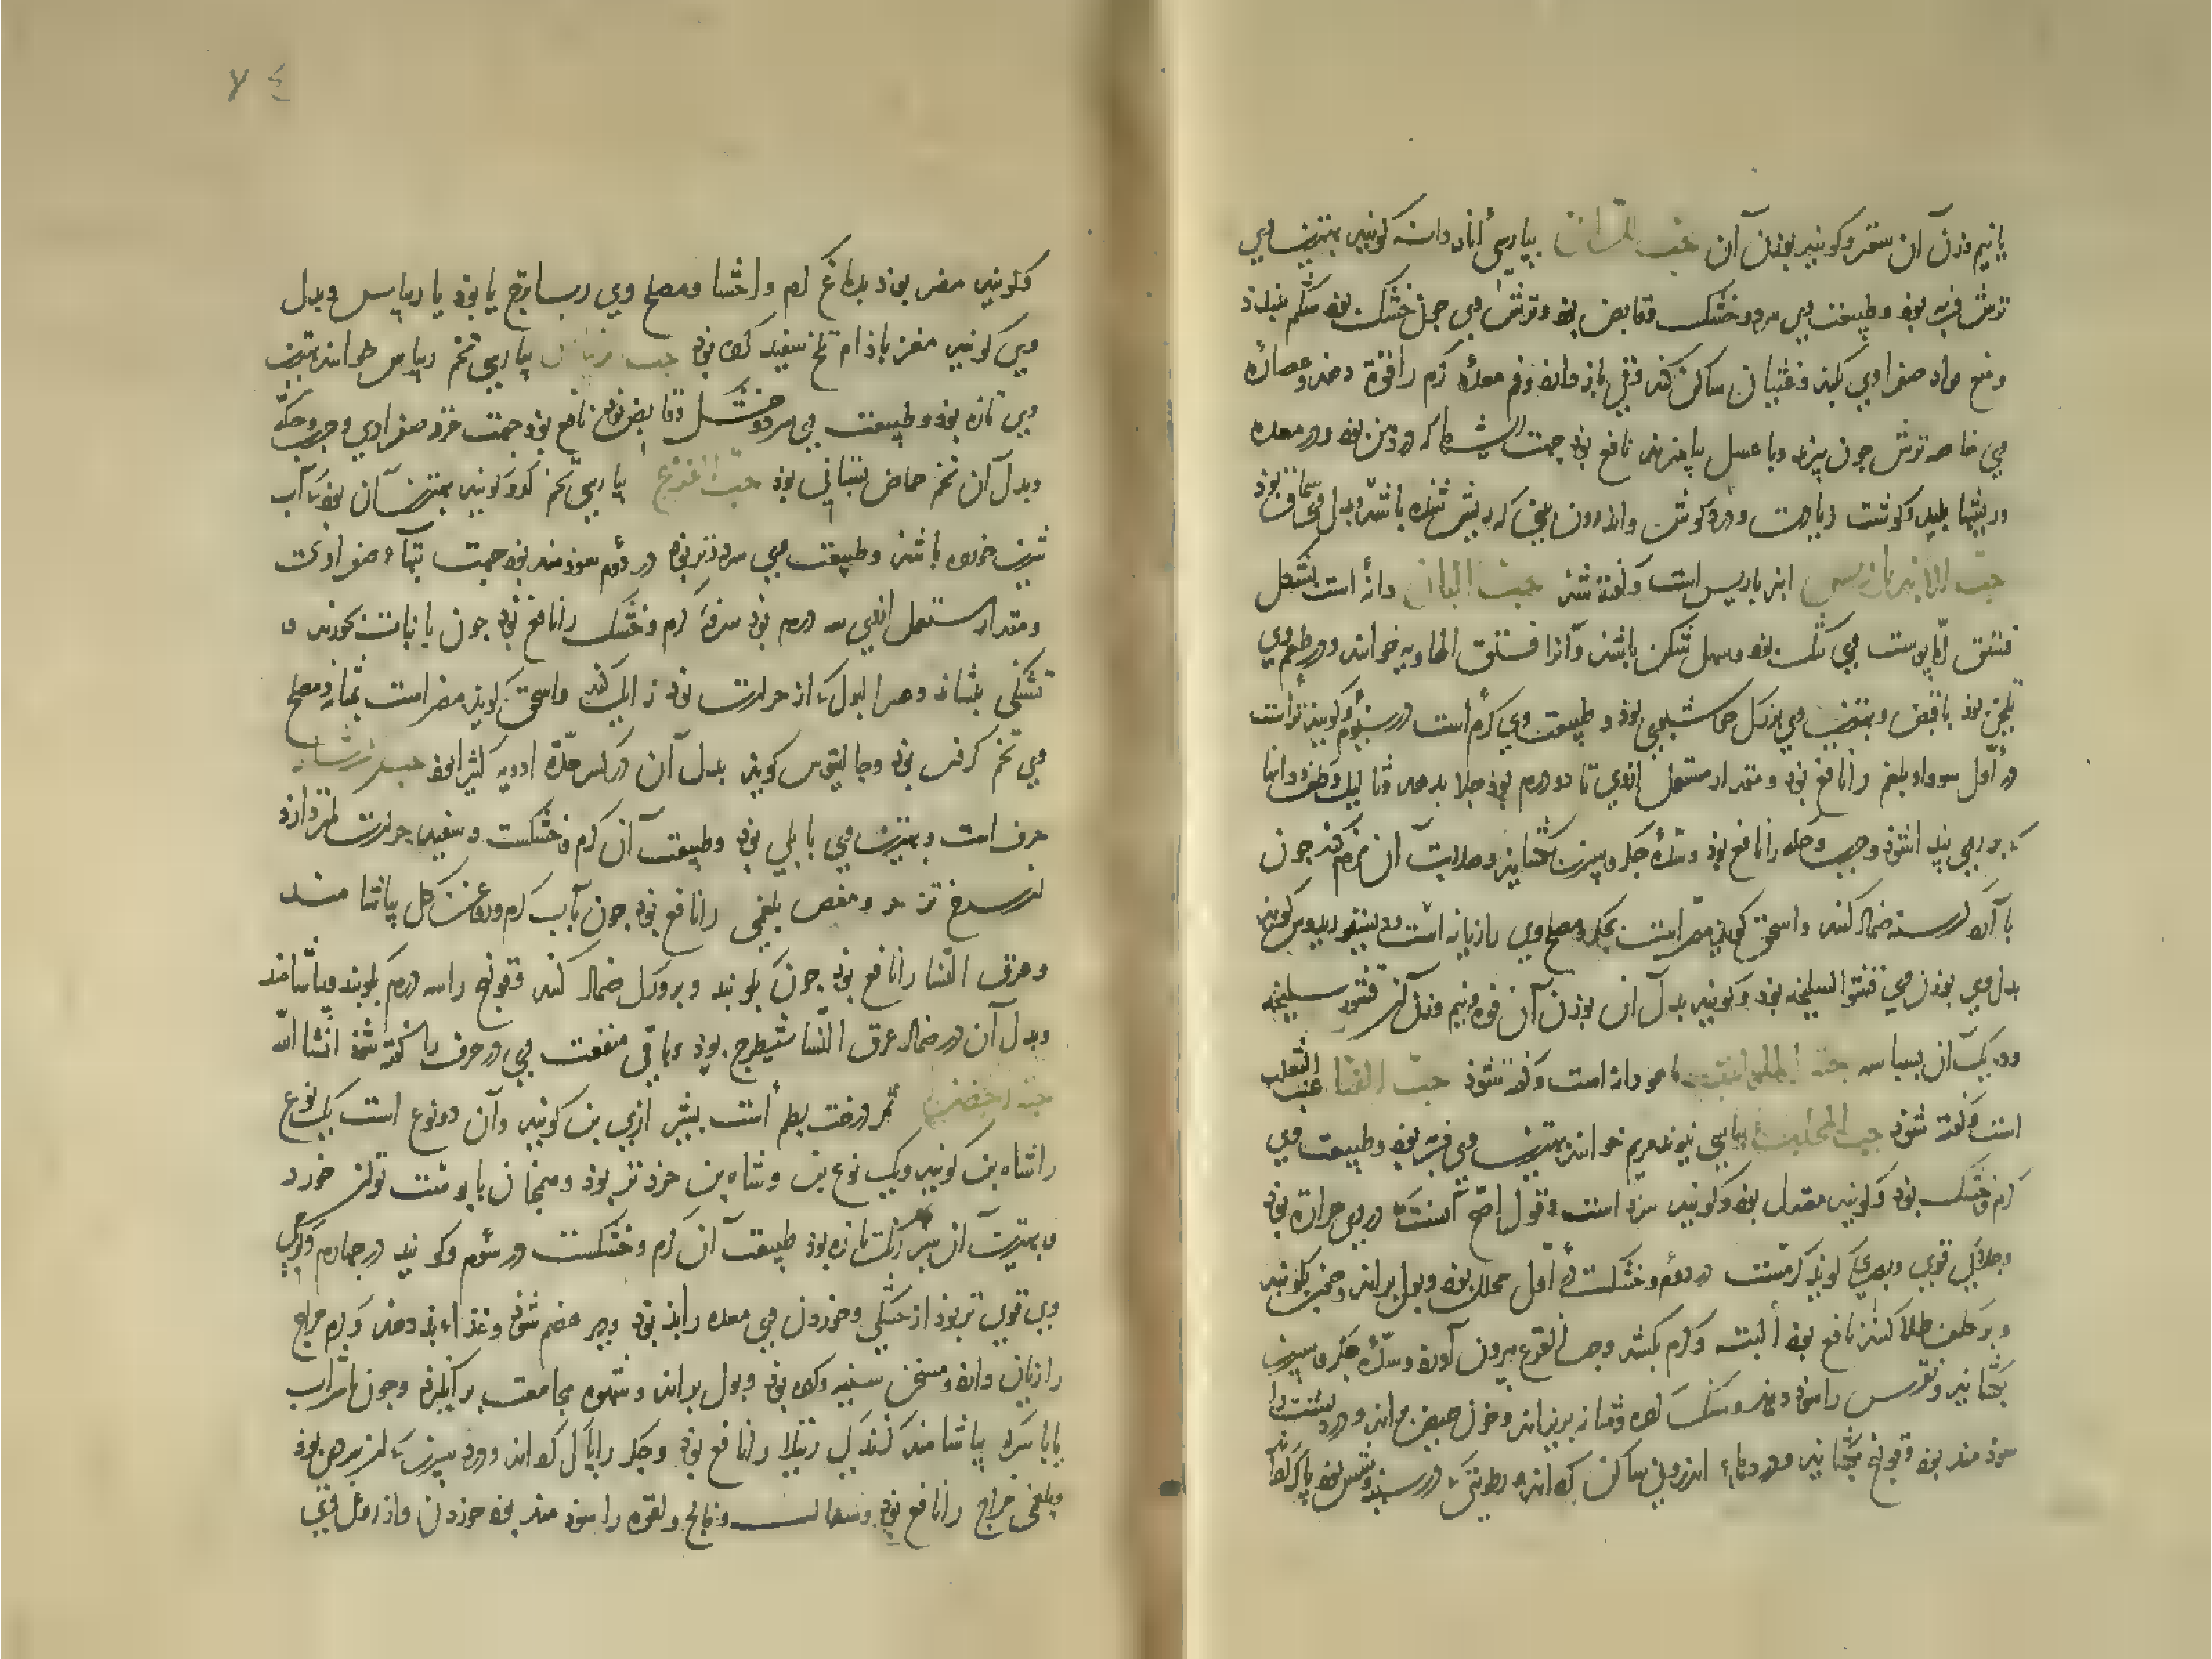 یا نیم وزن آن سعتر و کویند بوزن آن حب الرمان بپارسی أنار دانه کویند بهترین وی
ترش فربه بود و طبیعت وی سرد و خشک و قابض بود و ترش وی جون خشک بود شکم ببندد
و منع مواد صفراوی بکند و غثیان ساکن کند و قی باز دارد و فم معدۀ کرم را قوة دهد و عصارۀ
وی خاصه ترش جون بپزند و با عسل بیامیزند نافع بود جهت ریشها که در دهن بود و در معده
و ریشهاء پلید و کوشت زیادت و درد کوش و اندرون بینی که ریش شده باشد و بدل وی سماق بود
حب الانبرباریس انبرباریس است و کفته شد حب البان دانۀ است بشکل
فستق امّا پوست وی تنک بود و سهل شکن باشد و آنرا فستق الهاویه خوانند و در طعم وی
تلخی بود با قبض و بهترین وی بزرک بود و طبیعت وی کرم است در سیوم و کویند تر است
در أوّل سودا و بلغم را نافع بود و مقدار مستعمل ازوی تا دو درم بود جلا بدهد و ثآلیل و کلف و داغها
که بر روی پیدا شود و جرب و حکه را نافع بود و سدّۀ جکر و سپرز بکشاید و صلابت آن نرم کند جون
با آرد کرسنه ضماد کنند و اسحق کوید مضر است بجکر و مصلح وی رازیانه است و دیسقوریدوس کوید
بدل وی بوزن وی قشور السلیخه بود و کویند بدل آن بوزن آن فوه و نیم وزن آن قشور سلیخه
و ده یک آن بسباسه حب مامودانه است و کفته شود حب الفنا عنب الثعلب
است و کفته شود حب المحلب بپارسی نیوند مریم خوانند بهترین وی فربه بود و طبیعت وی
کرم و خشک بود و کویند معتدل بود و کویند سرد است و قول اصح آنست که در وی حرارة بود
و جلائی قوی و بصری کوید کرمست در دوم و خشکست در أوّل محلل بود و بول براند و جون بکوبند
و بر کلف طلا کنند نافع بود البته و کرم بکشد و حب القرع بیرون آورد و سدّۀ جکر و سپرز
بکشاید و نقرس را سود دهد و سنک کرده و مثانه بریزاند و خون حیض براند و درد پشت را
سود مند بود و قولنج بکشاید و درد اندرونی ساکن کرداند و رطوبتی که در سینه و شش بود پاک کند
کویند مضر بود بدماغ کرم و احشا و مصلح وی رب اترج یا بود یا ریباس و بدل
وی کویند مغز باذام تلخ سفید کرده بود حب ریباس بپارسی تخم ریباس خوانند بهترین
وی تازه بود و طبیعت وی سرد و خشک و قابض بود نافع بود جهت خرد صفراوی و جرب و حکه
و بدل آن تخم حماض بستانی بود حب القرع بپارسی تخم کدو کویند بهترین آن بود که آب
شیرین خورده باشد و طبیعت وی سرد و تر بود در دوم سودمند بود جهت تبهاء صفراوی
و مقدار مستعمل ازوی سه درم بود سرفۀ کرم و خشک را نافع بود جون با نبات بخورند و
تشنکی بنشاند و عسر البول که از حرارت بود زایل کند و اسحق کوید مضر است بمثانه و مصلح
وی تخم کرفس بود و جالینوس کوید بدل آن در کسر حدّة ادویه کثیرا بود حب الرشاد
حرف است و بهترین وی بابلی بود و طبیعت آن کرم و خشکست و سفید حرارت کمتر دارد
از سرخ تر و مغص بلغمی را نافع بود جون با آب کرم و روغن کل بیاشامند
و عرق النسا را نافع بود جون بکوبند و بر ورک ضماد کنند و قولنج را سه درم بکوبند و بیاشامند
و بدل آن در ضماد عرق النسا شیطرج بود و باقی منفعت وی در حرف را کفته شود انشا الله
حبة الخضرا ثمر درخت بطم أست بشیرازی بن کویند و آن دو نوع است یک نوع
را شاه بن کویند و یک نوع بن و شاه بن خرد تر بود و همچنان با پوست توان خورد
و بهترین آن سبز رنک تازه بود طبیعت آن کرم و خشکست در سوم و کویند در جهارم و کرمی
وی قوی تر بود از خشکی و خوردن وی معده را بد بود و دیر هضم شود و غذاء بد دهد و کرم مزاج
را زیان دارد و مسخن سینه و کرده بود و بول براند و شهوة مجامعت بر انکیزد و جون با شراب
یا با سرکه بیاشامند کزندکی رتیلا را نافع بود و جکر را پاک کرداند و درد سپرز که از سردی بود
و بلغمی مزاج را نافع بود و سعال و فالج و لقوه را سود مند بود خوردن و از روغن وی